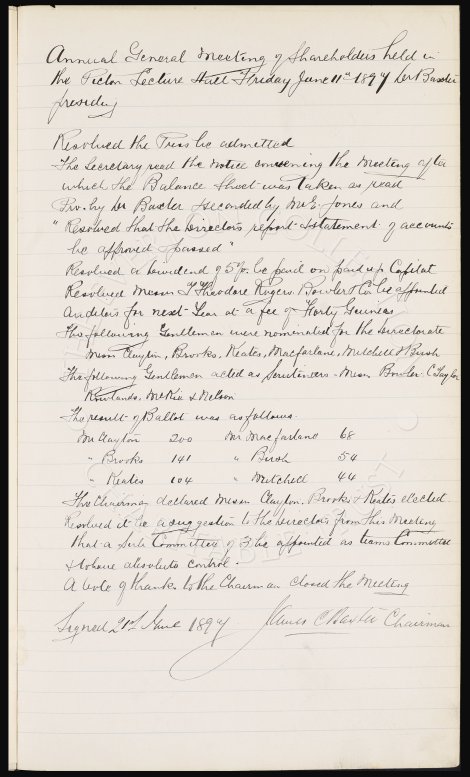 Annual General Meeting of Shareholders held in
the Picton Lecture Hall Friday June 11th 1897 Dr Baxter
presiding
Resolved the Press be admitted
The Secretary read the notice convening the meeting after
which the Balance Sheet was taken as read
Pro. by Dr Baxter seconded by Mr E. Jones and
"Resolved that the Directors report & statement of accounts
be approved & passed"
Resolved a dividend of 5% be paid on paid up Capital
Resolved Messrs T Theodore Rogers Bowler & Co be appointed
Auditors for next Year at a fee of Forty Guineas
The following Gentlemen were nominated for the Directorate
Messrs Clayton, Brooks, Keates, Macfarlane, Mitchell & Bush
The following Gentlemen acted as Scrutineers - Messrs Bowler C Taylor
Rowlands, McKie & Nelson
The result of Ballot was as follows
Mr Clayton 200 Mr Macfarlane 68
" Brooks 141 " Bush 54
" Keates 104 " Mitchell 44
The Chairman declared Messrs Clayton, Brooks & Keates elected
Resolved it be a suggestion to the Directors from this Meeting
that a Sub Committee of 3 be appointed as teams Committee
& to have absolute control.
A vote of thanks to the Chairman closed the Meeting
Signed 21st June 1897 James C Baxter Chairman